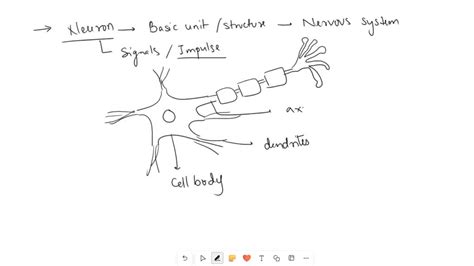 → Neuron → Basic unit / structure → Nervous system
Signals / Impulse
ax
dendrites
Cell body